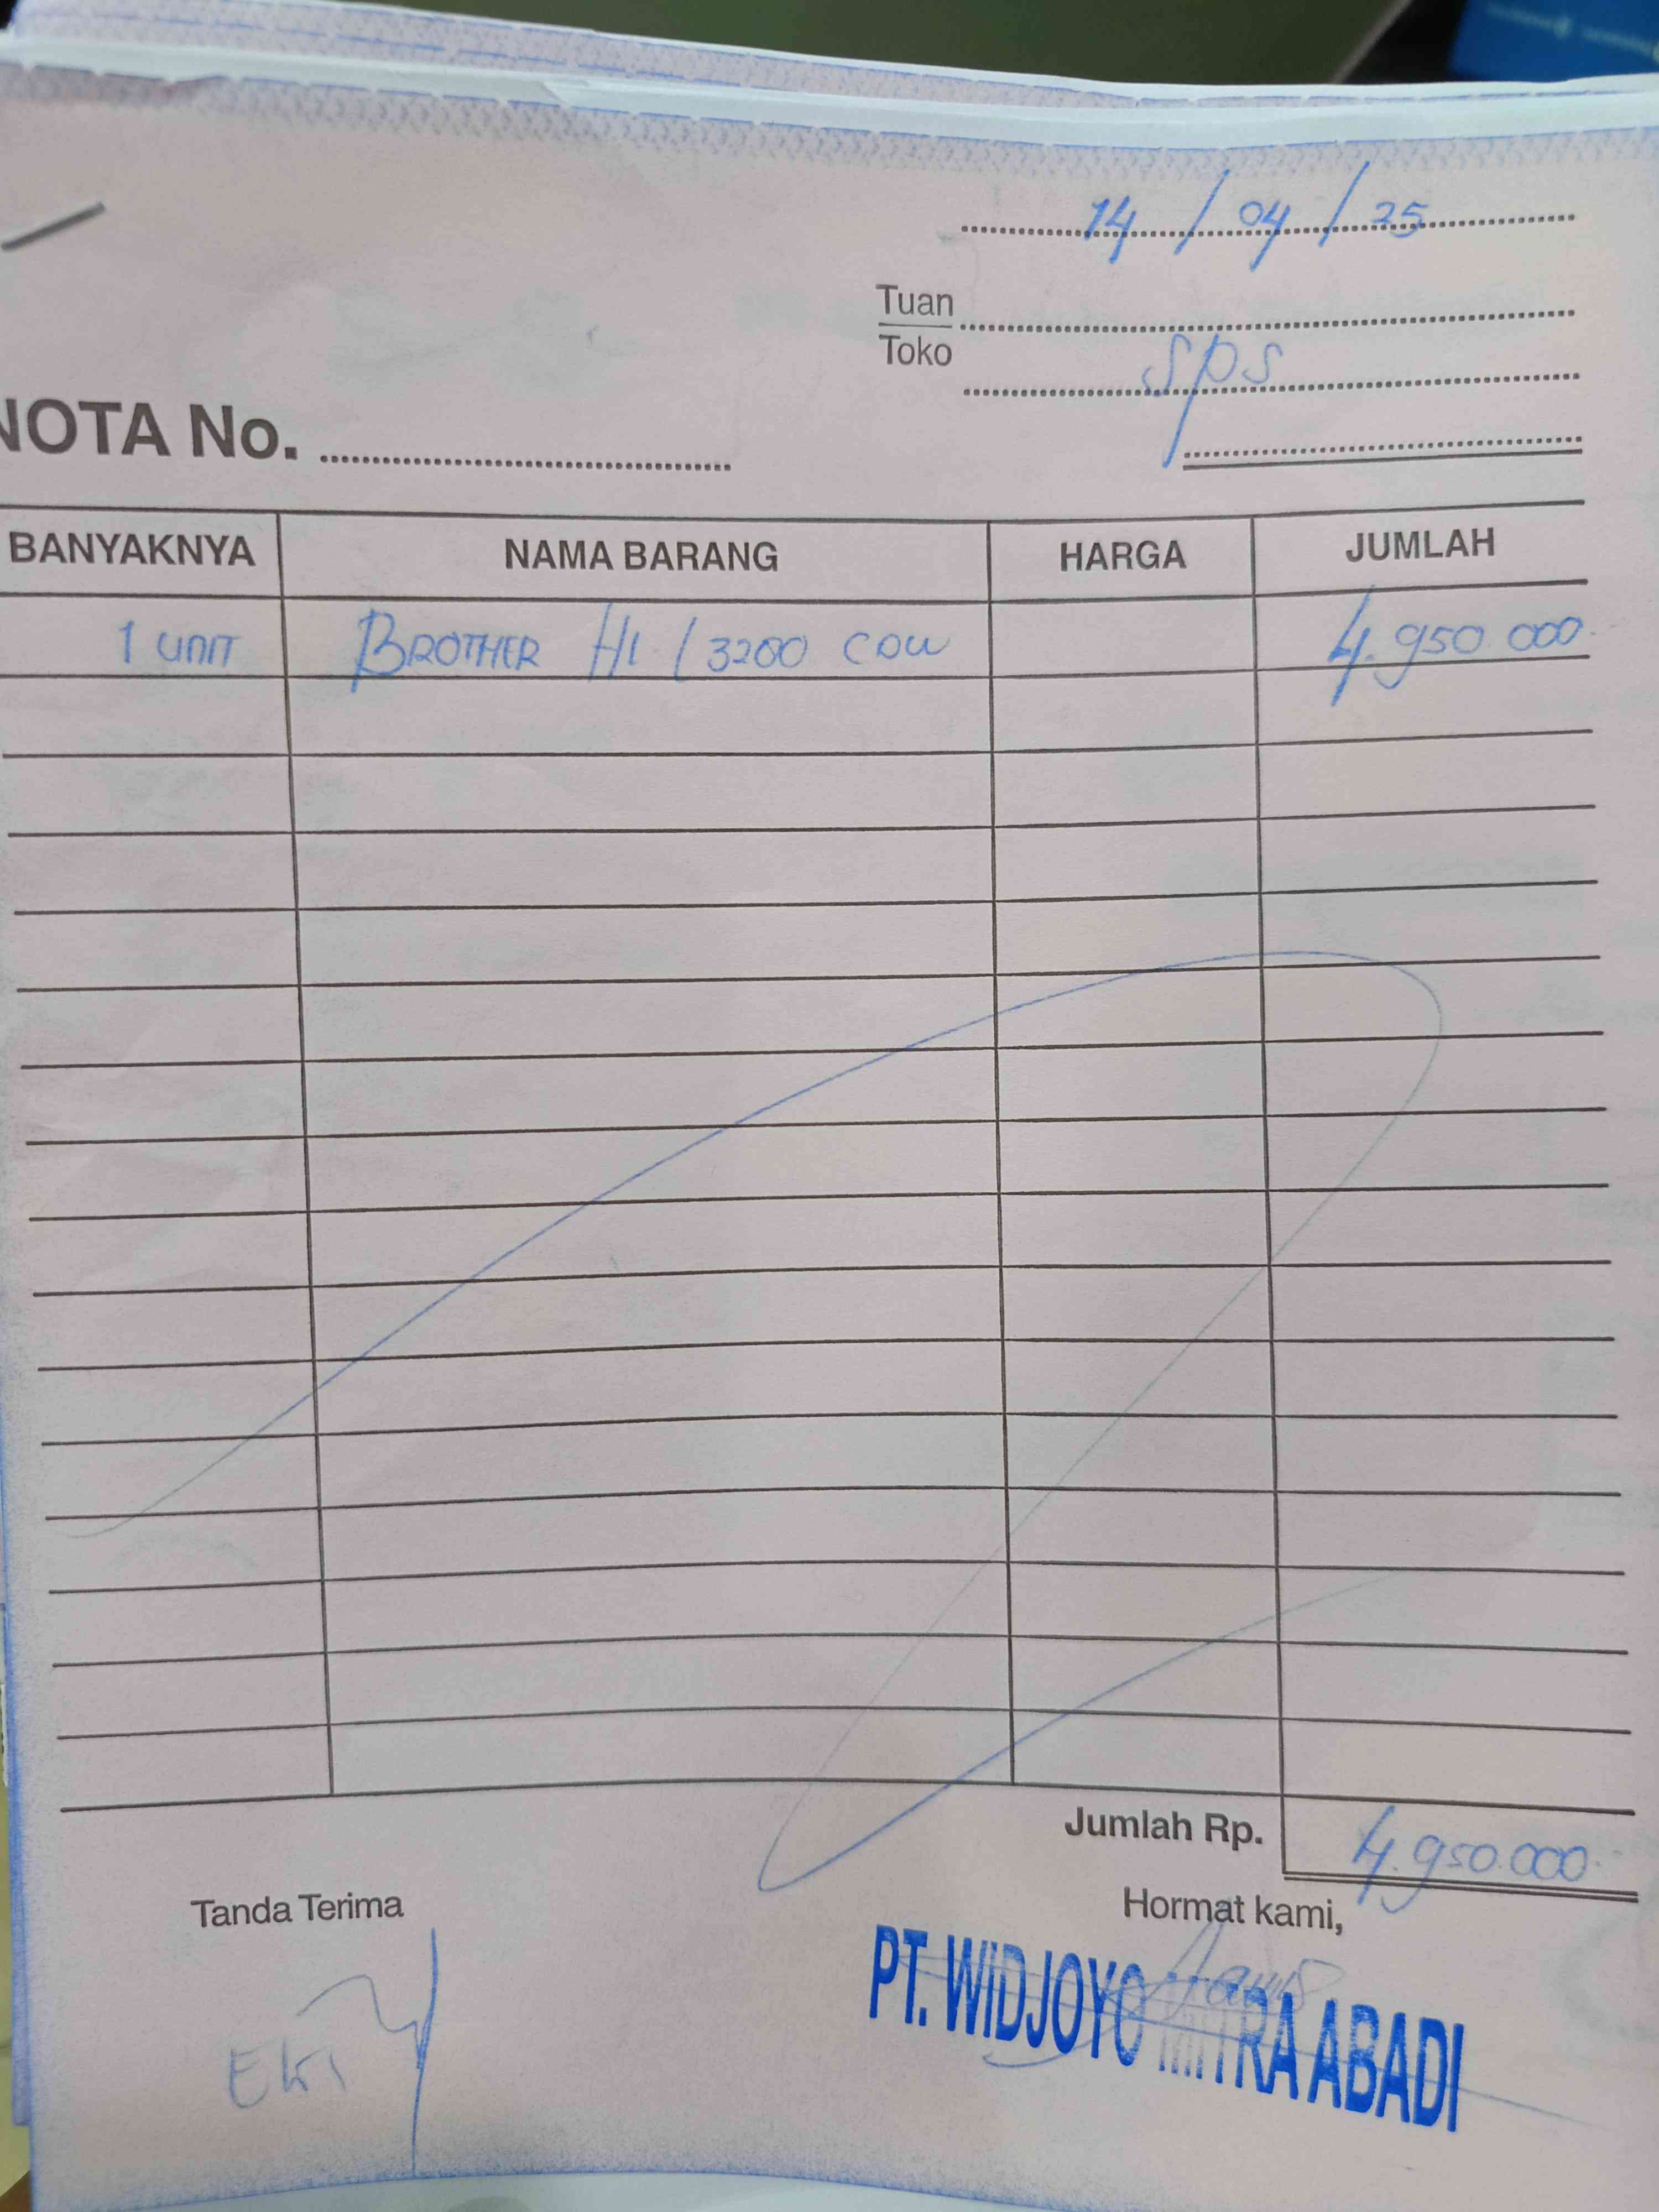 14/04/25
Tuan
Toko
sps
NOTA No.
BANYAKNYA NAMA BARANG HARGA JUMLAH
1 UNIT BROTHER HL / 3280 CDW 4.950.000
Jumlah Rp. 4.950.000
Tanda Terima Hormat kami,
PT. WIDJOYO MITRA ABADI
EKI